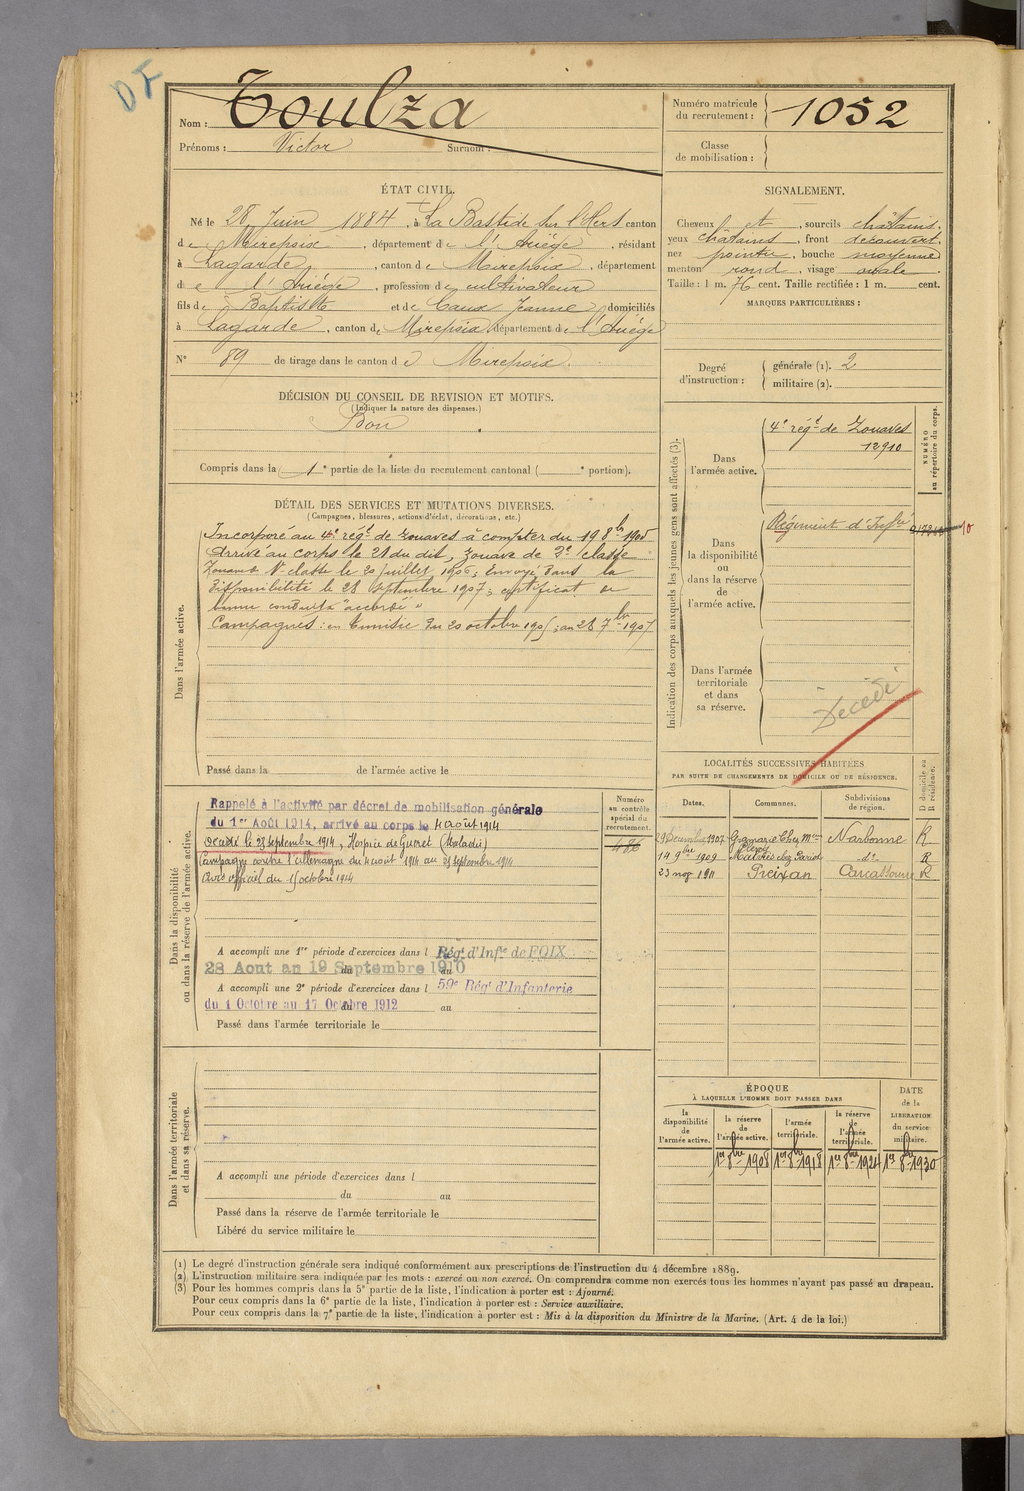 DF
Nom : Toulza
Prénoms : Victor Surnom :
Numéro matricule du recrutement : 1052
Classe de mobilisation :
ÉTAT CIVIL.
Né le 28 Juin 1884, à La Bastide sur l'Hers canton
de Mirepoix, département de l'Ariège, résidant
à Lagarde, canton de Mirepoix, département
de l'Ariège, profession de cultivateur
fils de Baptiste et de Caux Jeanne domiciliés
à Lagarde, canton de Mirepoix département de l'Ariège
N° 89 de tirage dans le canton de Mirepoix.
SIGNALEMENT.
Cheveux et, sourcils châtains,
yeux châtains, front découvert,
nez pointu, bouche moyenne
menton rond, visage ovale
Taille : 1 m. 76 cent. Taille rectifiée : 1 m. cent.
MARQUES PARTICULIÈRES :
Degré d'instruction : générale (1). 2
militaire (2).
DÉCISION DU CONSEIL DE REVISION ET MOTIFS.
(Indiquer la nature des dispenses.)
Bon
Compris dans la 1e partie de la liste du recrutement cantonal ( e portion).
DÉTAIL DES SERVICES ET MUTATIONS DIVERSES.
(Campagnes, blessures, actions d'éclat, décorations, etc.)
Dans l'armée active.
Incorporé au 4e régt de Zouaves à compter du 19 8bre 1905
Arrivé au corps le 21 du dit, zouave de 2e classe
Zouave 1re classe le 20 juillet 1906; Envoyé dans la
disponibilité le 28 septembre 1907; certificat de
bonne conduite "accordé"
Campagnes: en Tunisie du 20 octobre 1905 au 28 7bre 1907
Passé dans la de l'armée active le
Indication des corps auxquels les jeunes gens sont affectés (3).
NUMÉRO au répertoire du corps.
Dans l'armée active.
4e régt de Zouaves
12910
Dans la disponibilité ou dans la réserve de l'armée active.
Régiment d'Infie
Dans l'armée territoriale et dans sa réserve.
Décédé
LOCALITÉS SUCCESSIVES HABITÉES
PAR SUITE DE CHANGEMENTS DE DOMICILE OU DE RÉSIDENCE.
Dates. Communes. Subdivisions de région. D domicile ou R résidence.
29 Décembre 1907 Narbonne R
14 9bre 1909 do R
23 1911 Preixan Carcassonne R
Dans la disponibilité ou dans la réserve de l'armée active.
Numéro au contrôle spécial du recrutement.
486
Rappelé à l'activité par décret de mobilisation générale
du 1er Août 1914, arrivé au corps le 4 août 1914
Décédé le 23 septembre 1914, Hospice de Guéret (Maladie)
Campagne contre l'Allemagne du 4 août 1914 au 23 septembre 1914
Avis officiel du 15 octobre 1914
A accompli une 1re période d'exercices dans l Régt d'Infie de FOIX
28 Aout au 19 Septembre 1910
du au
A accompli une 2e période d'exercices dans l 59e Régt d'Infanterie
du 1 Octobre au 17 Octobre 1912
du au
Passé dans l'armée territoriale le
Dans l'armée territoriale et dans sa réserve.
A accompli une période d'exercices dans l
du au
Passé dans la réserve de l'armée territoriale le
Libéré du service militaire le
ÉPOQUE
À LAQUELLE L'HOMME DOIT PASSER DANS
la disponibilité de l'armée active.
la réserve de l'armée active.
l'armée territoriale.
la réserve de l'armée territoriale.
DATE de la LIBÉRATION du service militaire.
1er 8bre 1908 1er 8bre 1918 1er 8bre 1924 1er 8bre 1930
(1) Le degré d'instruction générale sera indiqué conformément aux prescriptions de l'instruction du 4 décembre 1889.
(2) L'instruction militaire sera indiquée par les mots : exercé ou non exercé. On comprendra comme non exercés tous les hommes n'ayant pas passé au drapeau.
(3) Pour les hommes compris dans la 5e partie de la liste, l'indication à porter est : Ajourné.
Pour ceux compris dans la 6e partie de la liste, l'indication à porter est : Service auxiliaire.
Pour ceux compris dans la 7e partie de la liste, l'indication à porter est : Mis à la disposition du Ministre de la Marine. (Art. 4 de la loi.)